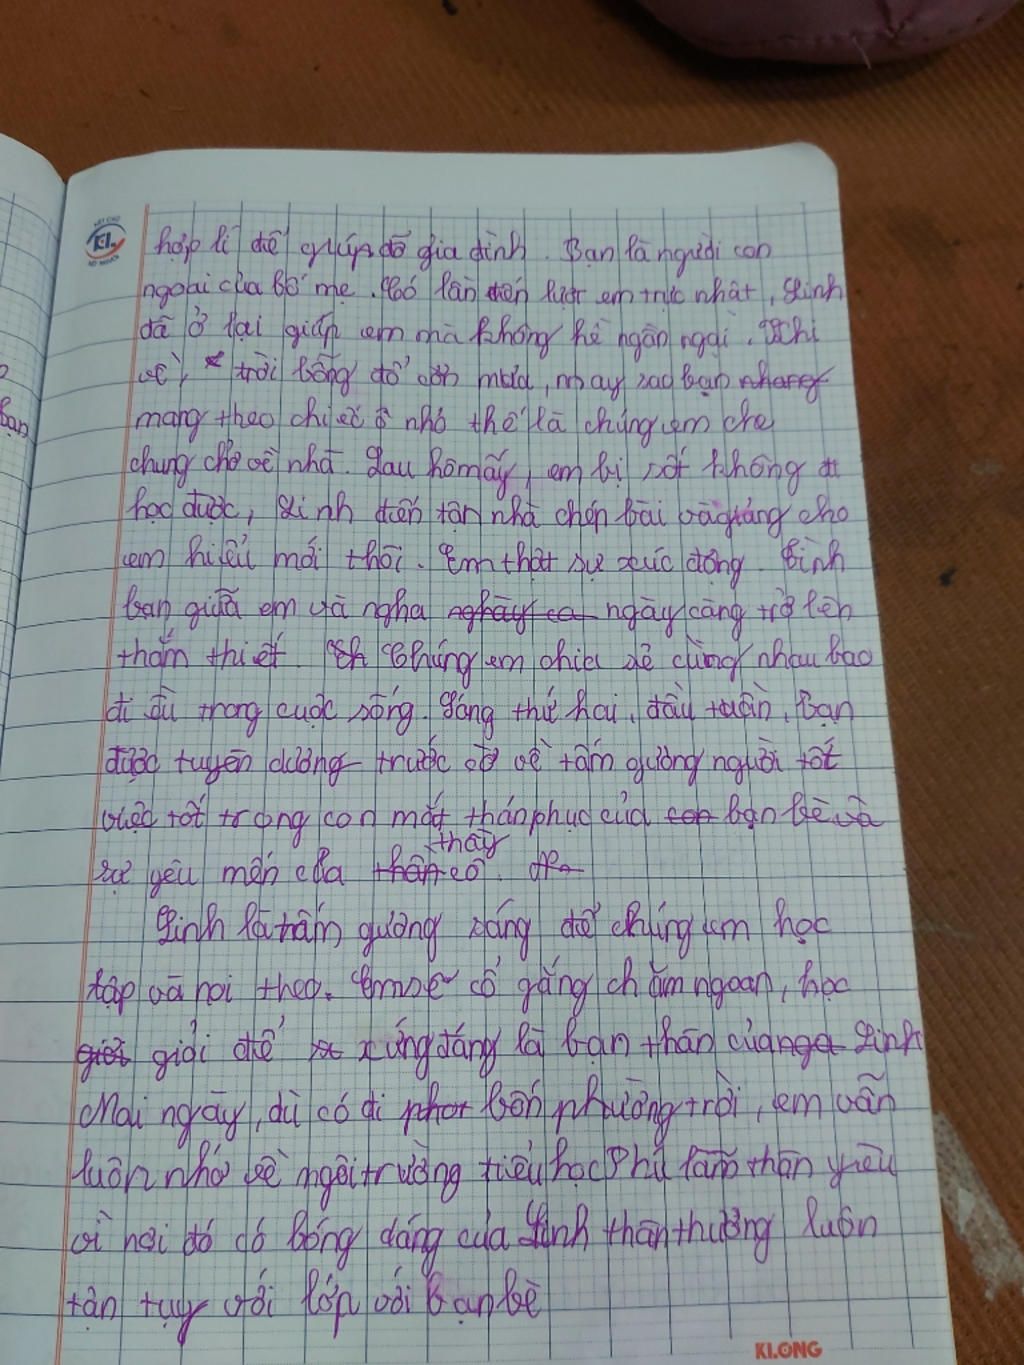 hợp lí để giúp đỡ gia đình. Bạn là người con
ngoài của bố mẹ. Có lần đến lượt em trực nhật, Linh
đã ở lại giúp em mà không hề ngần ngại. Khi
về, trời bỗng đổ cơn mưa, may sao bạn nhang
mang theo chiếc ô nhỏ thế là chúng em che
chung chở về nhà. Sau hôm ấy, em bị sốt không đi
học được, Linh đến tận nhà chép bài và giảng cho
em hiểu mới thôi. Em thật sự xúc động. Tình
bạn giữa em và ngha ngày càng trở lên
thắm thiết. Chúng em chia sẻ cùng nhau bao
đi ều trong cuộc sống. Sáng thứ hai, đầu tuần, bạn
được tuyên dương trước cờ về tấm gương người tốt
việc tốt trong con mắt thán phục của bạn bè và
thầy
sự yêu mến của cô.
Linh là tấm gương sáng để chúng em học
tập và noi theo. Em sẽ cố gắng chăm ngoan, học
giỏi để xứng đáng là bạn thân của Linh
Mai ngày, dù có đi bốn phương trời, em vẫn
luôn nhớ về ngôi trường tiểu học Phú Lâm thân yêu
vì nơi đó có bóng dáng của Linh thân thương luôn
tận tụy với lớp với bạn bè
KLONG